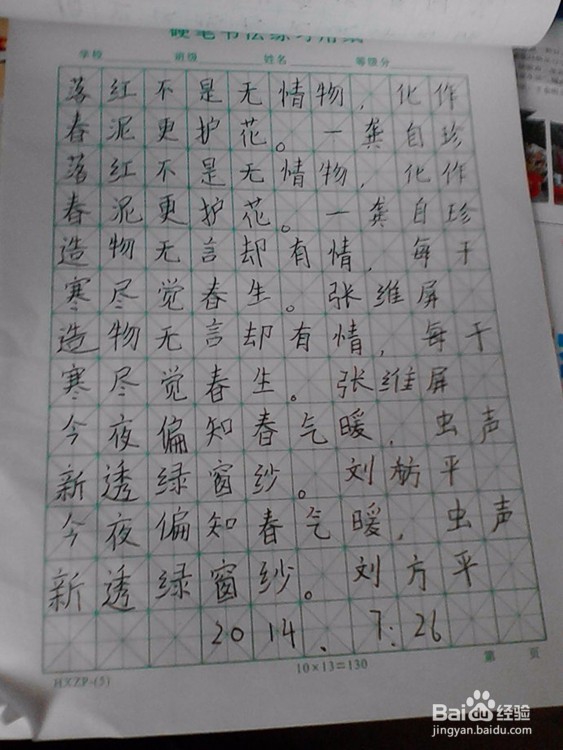 硬笔书法练习用纸
学校 班级 姓名 等级分
落红不是无情物，化作
春泥更护花。一龚自珍
落红不是无情物，化作
春泥更护花。一龚自珍
造物无言却有情，每于
寒尽觉春生。张维屏
造物无言却有情，每于
寒尽觉春生。张维屏
今夜偏知春气暖，虫声
新透绿窗纱。刘枋平
今夜偏知春气暖，虫声
新透绿窗纱。刘方平
2014、7:26
HXZP-(5) 10×13=130 第 页
Baidu经验
jingyan.baidu.com